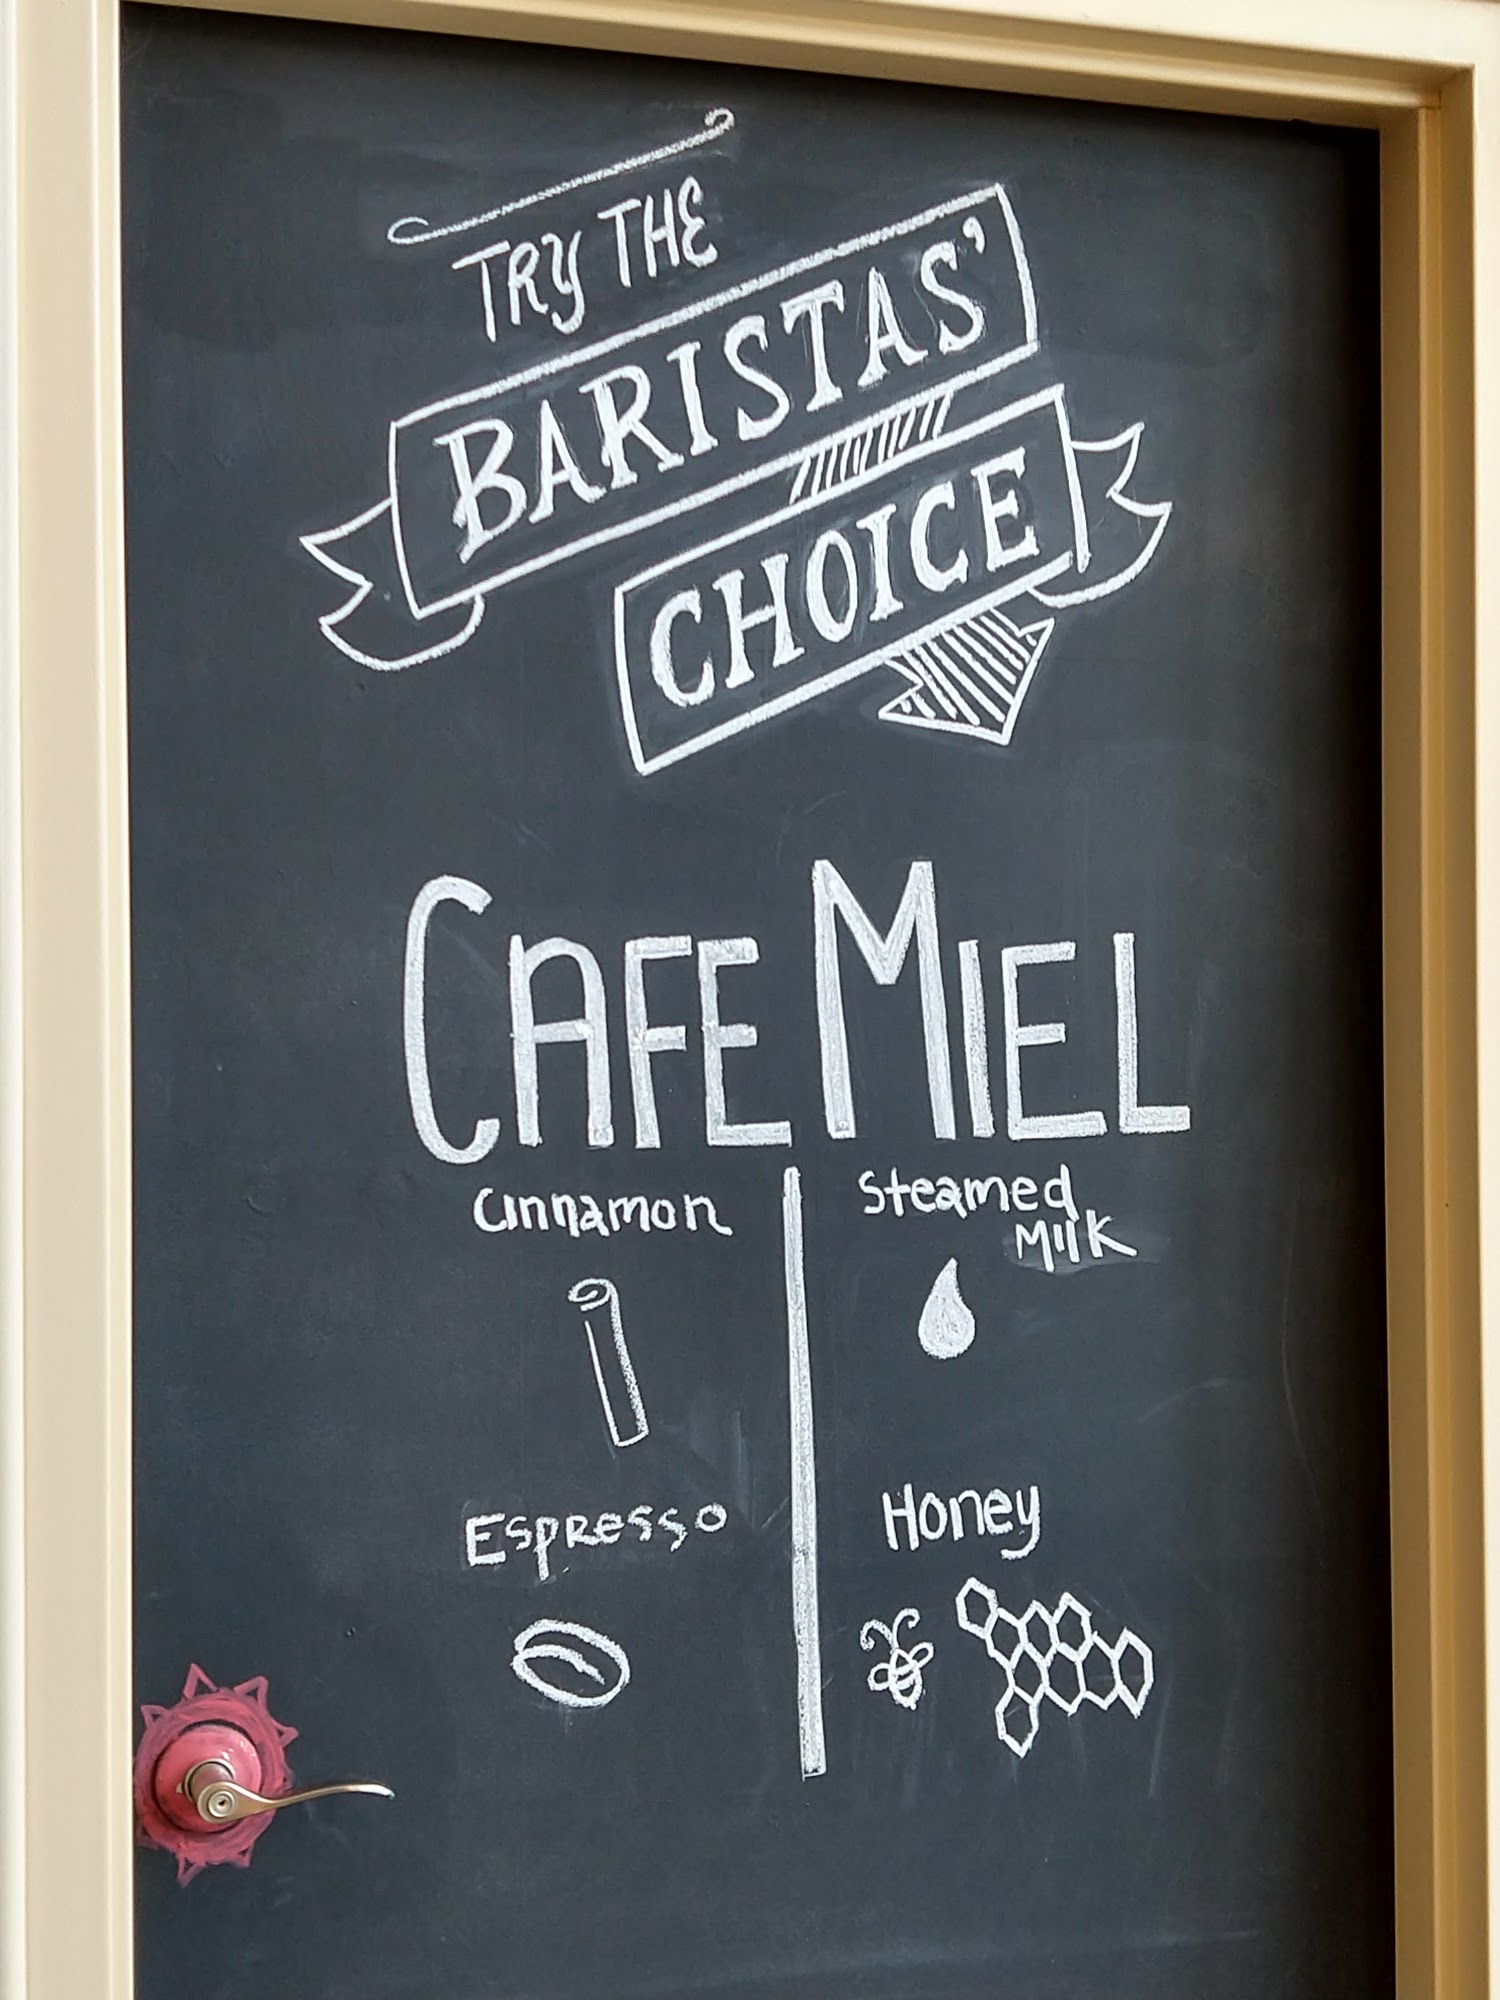 TRY THE
BARISTAS'
CHOICE
CAFE MIEL
Cinnamon
Steamed
Milk
Espresso
Honey